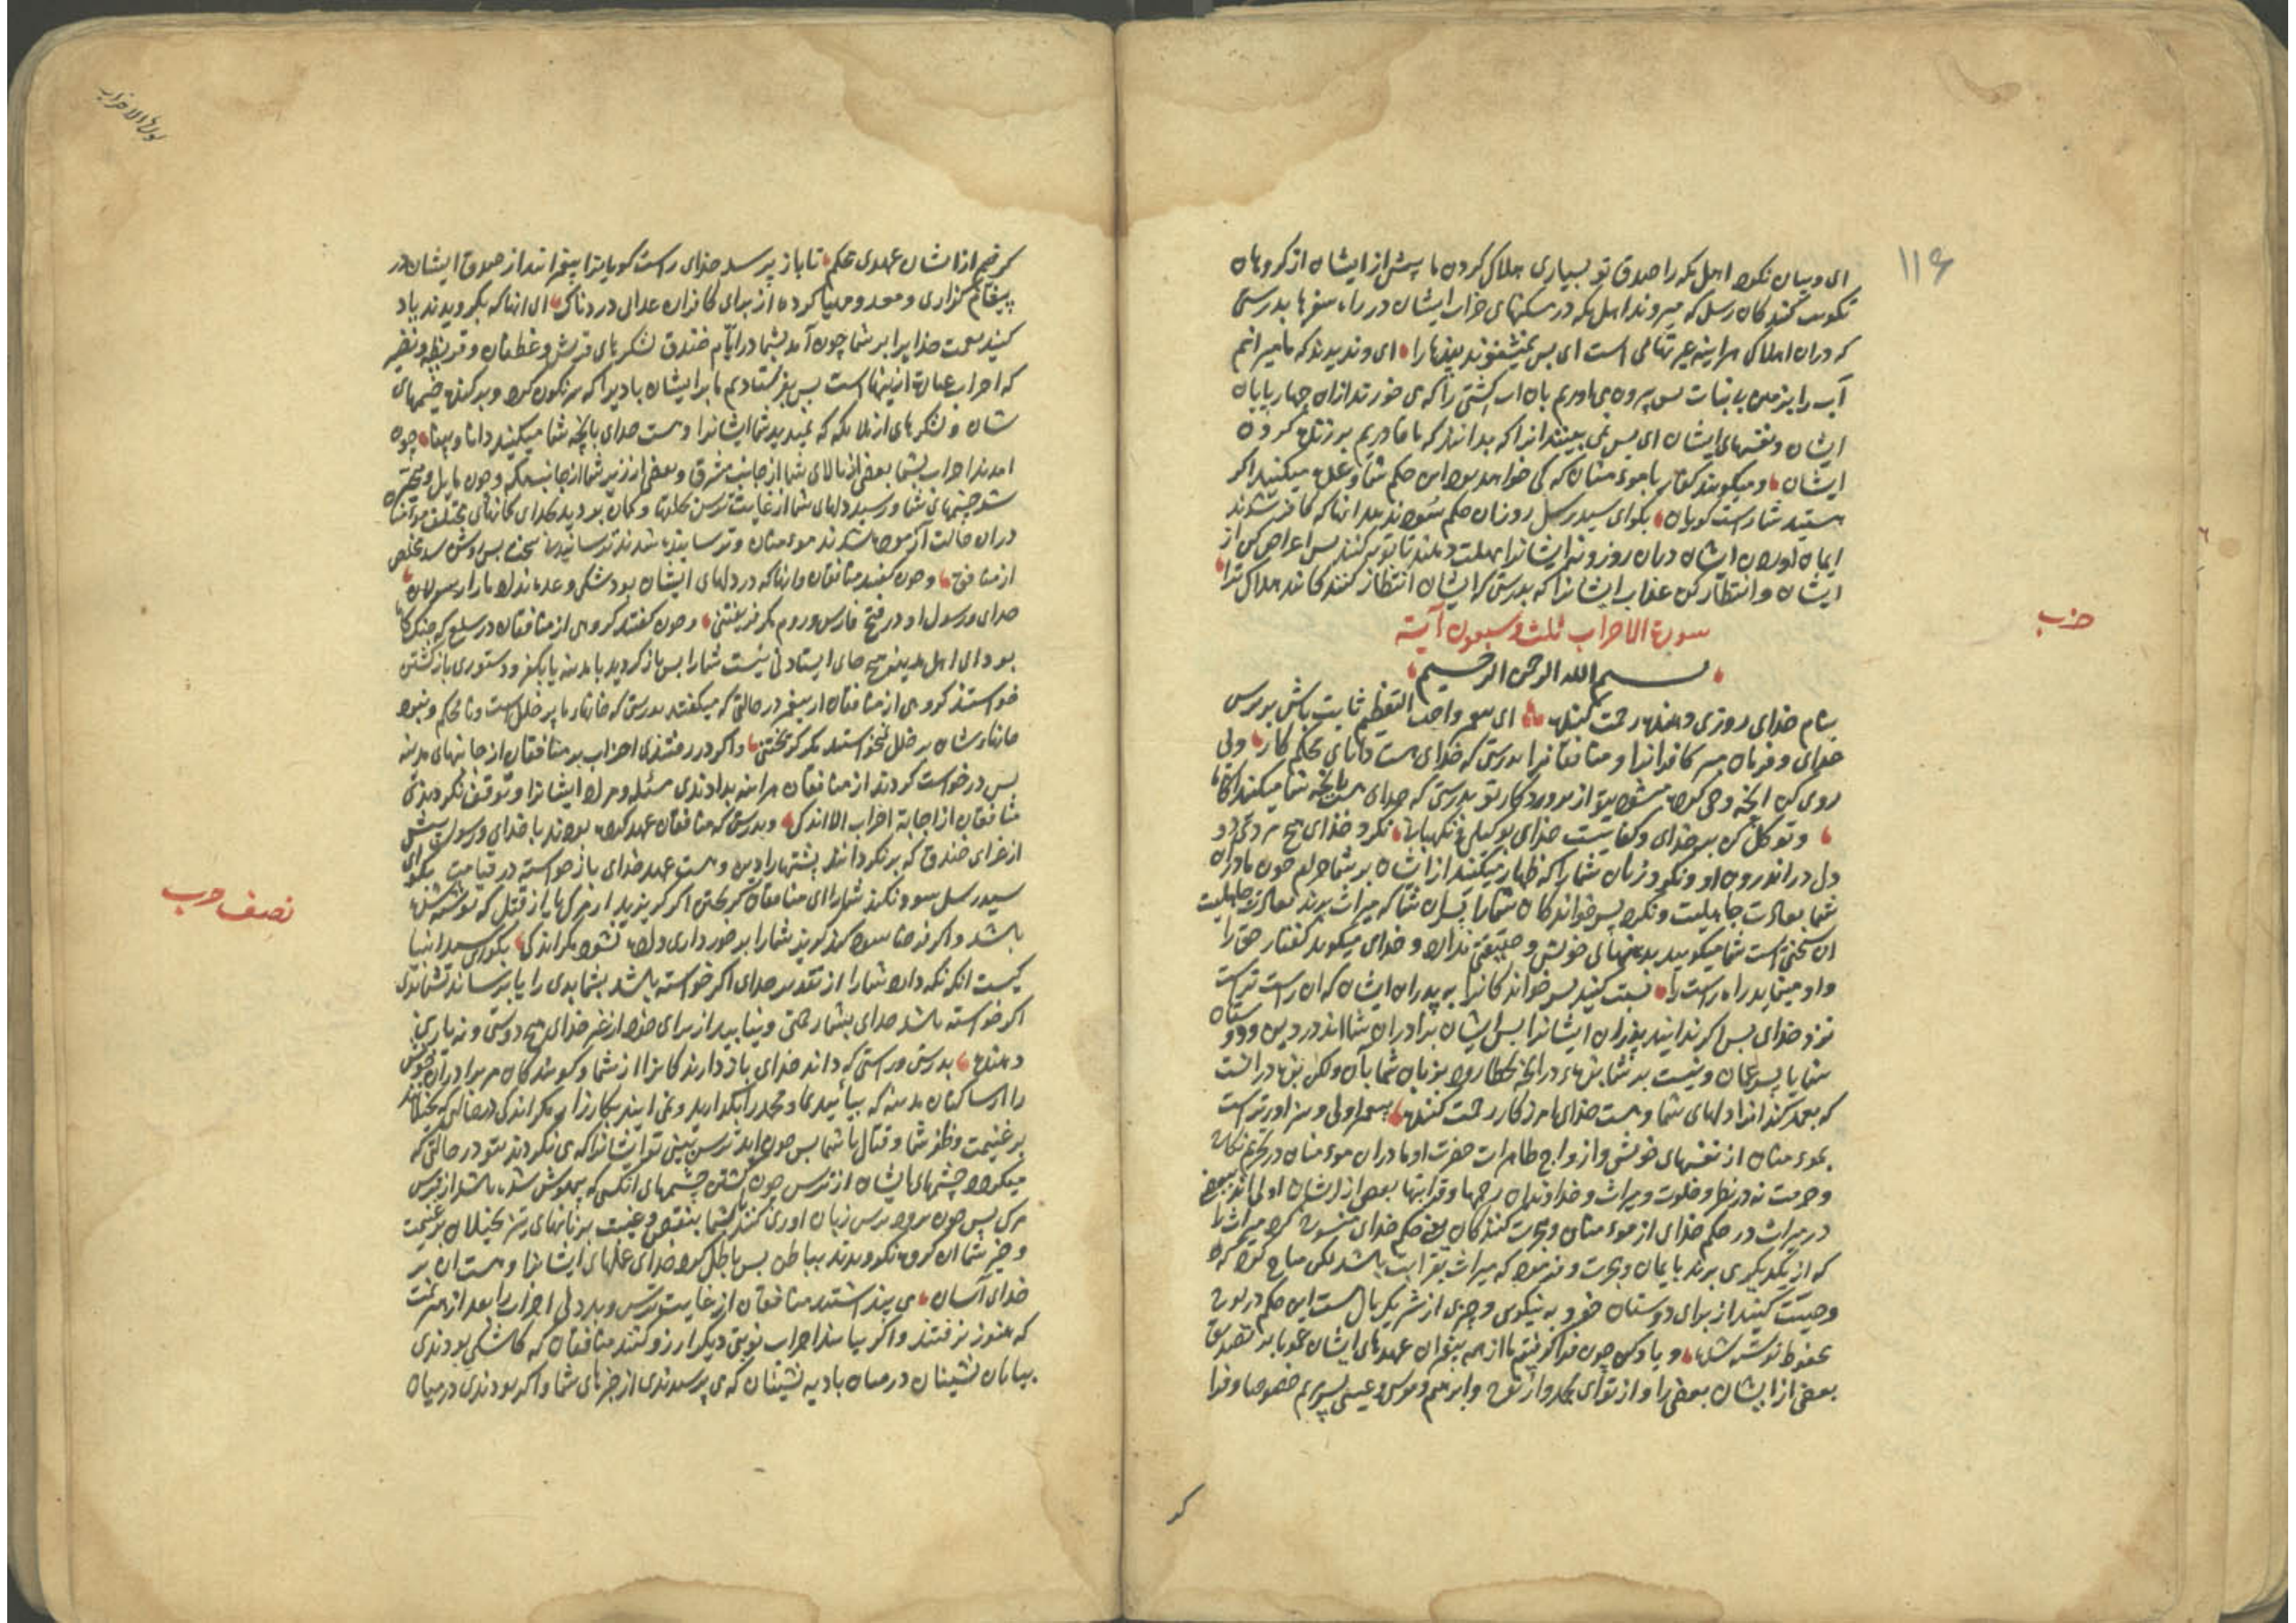 ۱۱۶
ای و بیان نکرد اهل مکه را صدق تو بسیاری هلاک کردن ما پیش از ایشان از کروهان
که میروند اهل مکه در مسکنهای خراب ایشان در راه سفرها بدرستی
که دران اهلاک هراینه عبرتهائی است ای پس نمیشنوند پندها را ای وندیدند که ما میرانیم
آب را بزمین بی نبات پس بیرون می‌اوریم بان اب کشتی را که می خورند ازان چهارپایان
ایشان و نفسهای ایشان ای پس نمی بینند انرا که بدانند که ما قادریم بر زنده کردن
ایشان و میکویند کفار با موءمنان که کی خواهد بود این حکم شما وعده میکنید اکر
هستید شما راست کویان بکو ای سید رسل روزان حکم سود ندهد انانکه کافر شدند
ایمان اوردن ایشان دران روز و نه ایشانرا مهلت دهند تا توبه کنند پس اعراض کن از
ایشان و انتظار کن عذاب ایشانرا که بدرستی که ایشان انتظار کنندکانند هلاک ترا
حزب
سورة الاحزاب ثلث وسبعون آیة
بسم الله الرحمن الرحیم
بنام خدای روزی دهنده رحمت کننده ای واجب التعظیم ثابت باش بر ترس
خدای و فرمان مبر کافرانرا و منافقانرا بدرستی که خدای هست دانای محکم کار و پی
روی کن انچه وحی کرده میشود بتو از پروردکار تو بدرستی که خدای هست بانچه شما میکنید اکاه
و توکل کن بر خدای و کفایتست خدای بوکیلی و نکهبانی نکرد خدای هیچ مردی دو
دل در اندرون او و نکرد زنان شما را که ظهار میکنند از ایشان بر شما حرام چون مادران
شما بعادت جاهلیت و نکرد پسر خواندکان شما را پسران شما که میراث برند بعادت جاهلیت
ان سخنی است شما میکویید بدهنهای خویش و حقیقتی ندارد و خدای میکوید کفتار حق را
و او مینماید راه راست را نسبت کنید پسر خواندکانرا به پدران ایشان که ان راست ترست
نزد خدای پس اکر ندانید پدران ایشانرا پس ایشان برادران شمااند در دین و دوستان
شما یا پسر عمان و نیست بر شما بزه در انچه بخطا رود بزبان شما بان ولکن بزه در انست
که بعمد کند انرا دلهای شما و هست خدای امرزکار رحمت کننده پیغمبر اولی و سزاورترست
بموءمنان از نفسهای خویش و ازواج طاهرات حضرت او مادران موءمنان در تحریم نکاح
و حرمت نه در نظر و خلوت و میراث و خداوندان رحمها و قرابتها بعضی از ایشان اولی‌اند ببعضی
در میراث در حکم خدای از موءمنان و هجرت کنندکان یعنی حکم خدای منسوخ کرد میراث را
که از یکدیکری برند بایمان و هجرت و فرمود که میراث بقرابت باشد لکن مباح کرد که
وصیت کنید از برای دوستان خود به نیکوی و چیزی از شما هست این حکم در لوح
محفوظ نوشته شده و یاد کن چون فرا کرفتیم ما از همه پیغمبران عهدهای ایشان بر تصدیق
بعضی از ایشان بعضی را و از تو ای محمد و از نوح و ابرهیم و موسی و عیسی پسر مریم خصوصا و فرا
کر
سورة الاحزاب
کرفتیم از ایشان عهدی محکم تا باز پرسد خدای راست کویانرا پیغمبرانند از صدق ایشان در
پیغام کزاری و معد و مهیا کرده از برای کافران عذابی دردناک ای انهاکه بکرویدند یاد
کنید نعمت خدایرا بر شما چون آمد بشما در ایام خندق لشکرهای قریش و غطفان و قریظه و نضیر
که احزاب عبارت از اینهاست پس بفرستادیم ما بر ایشان بادیرا که سرنکون کرد و برکند خیمهای
شان و لشکرهای از ملایکه که ندیدید شما ایشانرا و هست خدای بانچه شما میکنید دانا و بینا چون
امدند احزاب بشما بعضی از بالای شما از جانب مشرق و بعضی از زیر شما از جانب مکه و چون مایل و متحیر
شد چشمهای شما و رسید دلهای شما از غایت ترس بحلقها و کمان بردید بخدای کمانهای مختلف
دران حالت آزموده شدند موءمنان و ترسانیده شدند ترسانیدن سخت
از منافق و چون کفتند منافقان و انهاکه در دلهای ایشان بود شکی وعده نداد ما را
خدای و رسول او در فتح فارس و روم مکر فریفتنی و چون کفتند کروهی از منافقان
بود ای اهل مدینه هیچ جای ایستادنی نیست شما را پس باز کردید بمدینه یا بکفر و دستوری باز کشتن
خواستند کروهی از منافقان از پیغمبر در حالتی که میکفتند بدرستی که خانهاء ما پر خلل است و نامحکم و نبود
خانهاء شان پر خلل نخواستند مکر کریختن و اکر در رفتندی احزاب بر منافقان از جانبهای مدینه
پس درخواست کردند از منافقان هراینه بدادندی مسئله و مراد ایشانرا و توقف نکردندی
منافقان از اجابة احزاب الا اندکی و بدرستی که منافقان عهد کرده بودند با خدای و رسول پیش
از غزای خندق که بر نکردانند پشتها را و هست عهد خدای باز خواسته در قیامت بکو ای
سید رسل سود نکند شما را ای منافقان کریختن اکر کریزید از مرک یا از قتل که نوشته شده
نصف حزب
باشد و اکر شما را بر خورداری داده نشود مکر اندکی بکو ای سید انبیا
کیست انکه نکه دارد شما را از تقدیر خدای اکر خواسته باشد بشما بدی را
اکر خواسته باشد خدای بشما رحمتی و نیابید از برای خود از غیر خدای هیچ دوستی و نه یاری
دهنده بدرستی و راستی که داند خدای باز دارندکانرا از شما و کویندکان مر برادران خویش
را از ساکنان مدینه که بیایید بما و محمد را بکذارید و نمی ایند بکارزار مکر اندکی در حالی که بخیلانند
بر غنیمت و ظفر شما و قتال با شما پس چون اید ترس بینی تو ایشانرا که می نکرند بتو در حالتی که
میکردد چشمهای ایشان از ترس چون کشتن چشمهای انکس که بیهوش شده باشد از ترس
مرک پس چون برود ترس زبان اوری کنند با شما بنقض و غیبت بزبانهای تیز بخیلان بر غنیمت
و خیر شما ان کروه نکرویدند بباطن پس باطل کرد خدای عملهای ایشانرا و هست ان بر
خدای آسان می پنداشتند منافقان از غایت ترس و بد دلی احزاب را بعد از هزیمت
که هنوز نرفتند و اکر بیایند احزاب نوبتی دیکر ارزو کنند منافقان که کاشکی بودندی
بیابان نشینان در میان بادیه نشینان که می پرسیدندی از خبرهای شما و اکر بودندی در میان